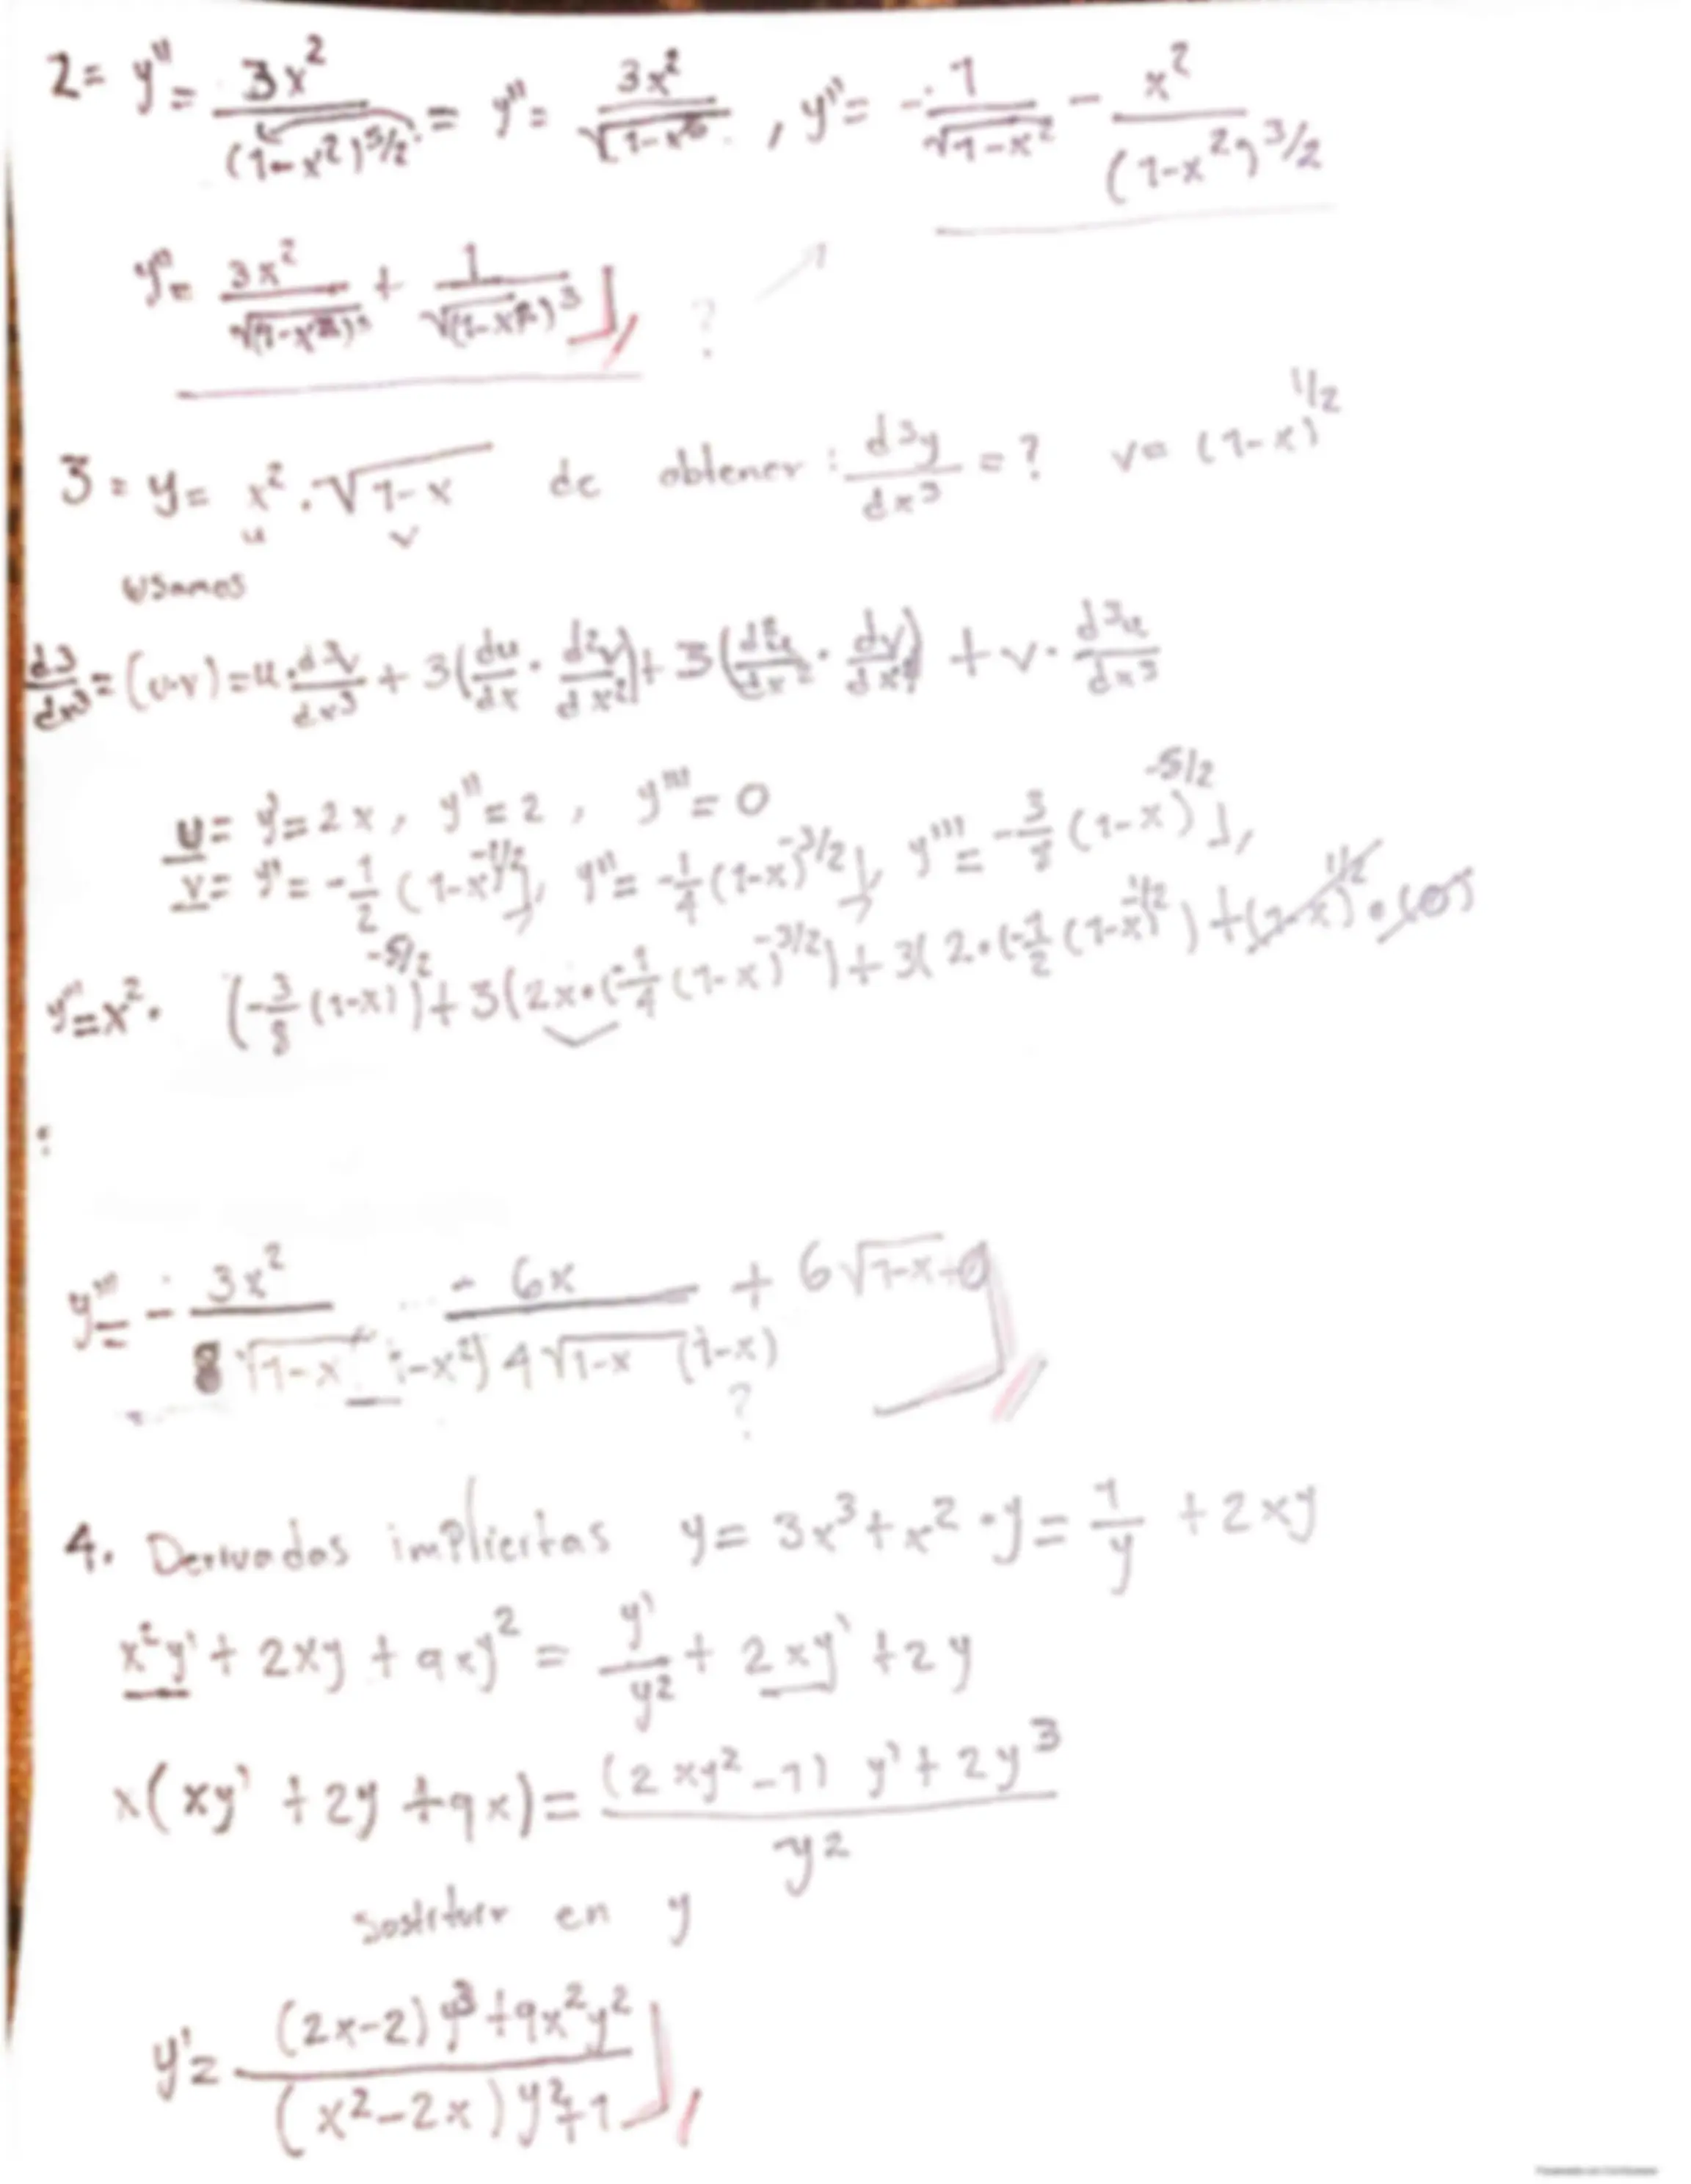 2= y''= 3x²/(1-x²)^5/2 = y''= 3x²/√1-x⁵ , y''= -1/√1-x² - x²/(1-x²)^3/2
y''= 3x²/√(1-x²)⁵ + 1/√(1-x²)³ ?
3= y= x²·√1-x de obtener: d³y/dx³ =? v= (1-x)^1/2
u v
usamos
d³/dx³ =(u·v)=u·d³v/dx³ + 3(du/dx · d²v/dx²)+3(d²u/dx² · dv/dx) + v· d³u/dx³
u= y'=2x, y''=2, y'''=0
v= y'= -1/2 (1-x)^-1/2, y''= -1/4(1-x)^-3/2, y'''= -3/8 (1-x)^-5/2
y'''=x²· (-3/8 (1-x)^-5/2)+3(2x·(-1/4 (1-x)^-3/2)+3(2·(-1/2 (1-x)^-1/2)+(1-x)^1/2·(0)
:
y'''= - 3x²/8√1-x (1-x²) - 6x/4√1-x (1-x) + 6√1-x+0
?
4. Derivadas implicitas y= 3x³+x²·y= 1/y +2xy
x²y'+ 2xy + 9xy² = y'/y² + 2xy' +2y
x(xy' +2y +9x)= (2xy²-1) y'+2y³/y²
sostituir en y
y'= (2x-2)y³+9x²y²/(x²-2x)y²+1